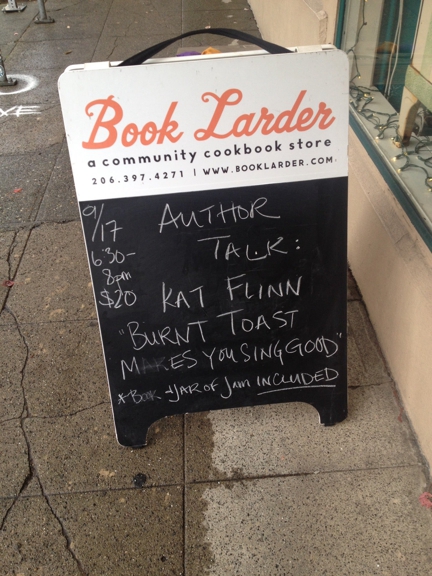 Book Larder
a community cookbook store
206.397.4271 | WWW.BOOKLARDER.COM
9/17
6:30-
8pm
$20
AUTHOR
TALK:
KAT FLINN
"BURNT TOAST
MAKES YOU SING GOOD"
*BOOK + JAR OF JAM INCLUDED